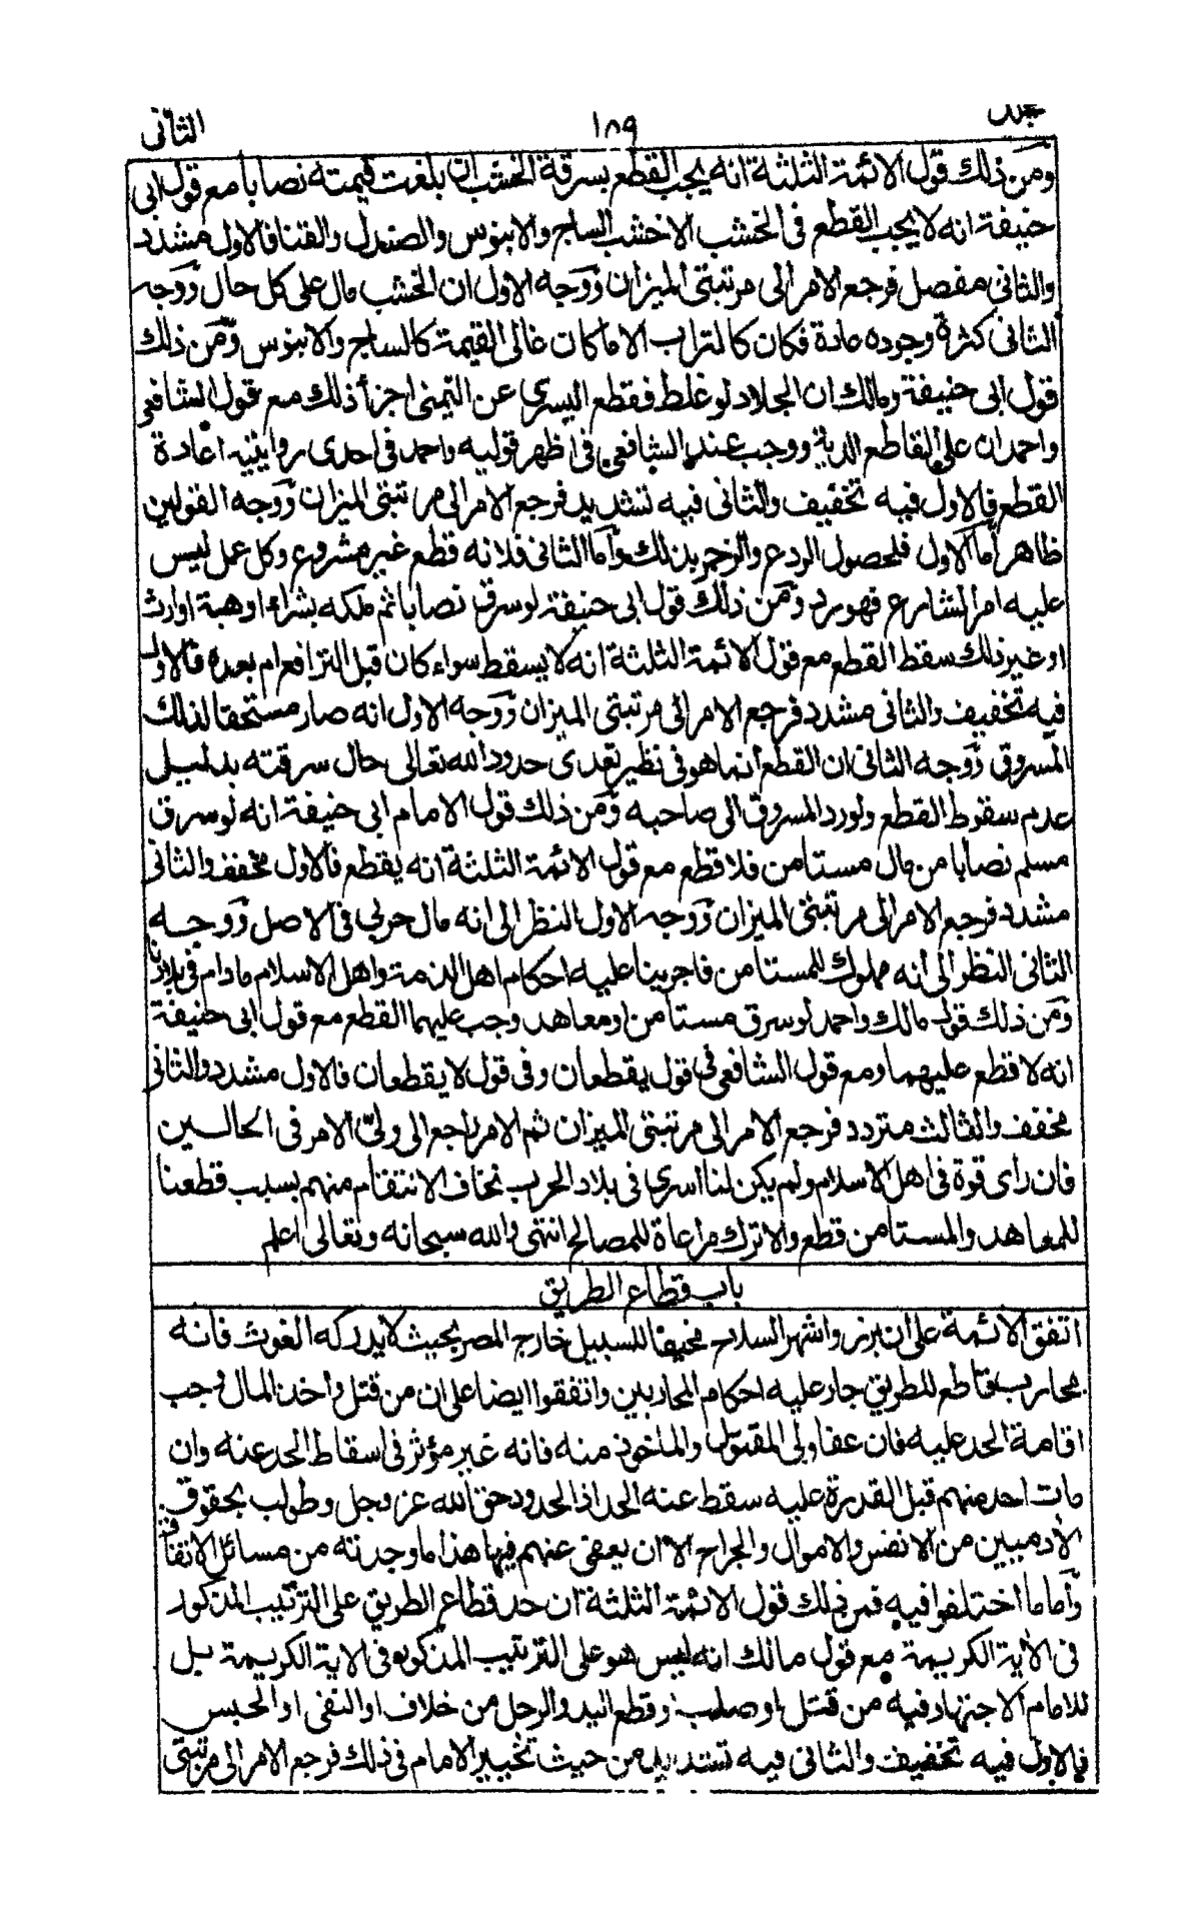 جلد ١٥٩ الثانى
ومن ذلك قول الائمة الثلثة انه يجب القطع بسرقة الخشب ان بلغت قيمته نصابا مع قول ابى
حنيفة انه لا يجب القطع فى الخشب الا خشب الساج والابنوس والصندل والقنا فالاول مشدد
والثانى مفصل فرجع الامر الى مرتبتى الميزان ووجه الاول ان الخشب مال على كل حال ووجه
الثانى كثرة وجوده عادة فكان كالتراب الا ما كان غالى القيمة كالساج والابنوس ومن ذلك
قول ابى حنيفة ومالك ان الجلاد لو غلط فقطع اليسرى عن اليمنى اجزأ ذلك مع قول الشافعى
واحمد ان على القاطع الدية ووجب عند الشافعى فى اظهر قوليه واحمد فى احدى روايتيه اعادة
القطع فالاول فيه تخفيف والثانى فيه تشديد فرجع الامر الى مرتبتى الميزان ووجه القولين
ظاهر أما الاول فلحصول الردع والزجر بذلك وأما الثانى فلانه قطع غير مشروع وكل عمل ليس
عليه امر الشارع فهو رد ومن ذلك قول ابى حنيفة لو سرق نصابا ثم ملكه بشراء او هبة او ارث
او غير ذلك سقط القطع مع قول الائمة الثلثة انه لا يسقط سواء كان قبل الترافع ام بعده فالاول
فيه تخفيف والثانى مشدد فرجع الامر الى مرتبتى الميزان ووجه الاول انه صار مستحقا لذلك
المسروق ووجه الثانى ان القطع انما هو فى نظير تعدى حدود الله تعالى حال سرقته بدليل
عدم سقوط القطع ولو رد المسروق الى صاحبه ومن ذلك قول الامام ابى حنيفة انه لو سرق
مسلم نصابا من مال مستامن فلا قطع مع قول الائمة الثلثة انه يقطع فالاول مخفف والثانى
مشدد فرجع الامر الى مرتبتى الميزان ووجه الاول النظر الى انه مال حربى فى الاصل ووجه
الثانى النظر الى أنه مملوك للمستامن فاجرينا عليه احكام اهل الذمة واهل الاسلام مادام فى بلادنا
ومن ذلك قول مالك واحمد لو سرق مستامن او معاهد وجب عليهما القطع مع قول ابى حنيفة
انه لا قطع عليهما ومع قول الشافعى فى قول يقطعان وفى قول لا يقطعان فالاول مشدد والثانى
مخفف والثالث متردد فرجع الامر الى مرتبتى الميزان ثم الامر راجع الى ولىّ الامر فى الحالين
فان رأى قوة فى اهل الاسلام ولم يكن لنا اسرى فى بلاد الحرب نخاف الانتقام منهم بسبب قطعنا
للمعاهد والمستامن قطع والا ترك مراعاة للمصالح انتهى والله سبحانه وتعالى اعلم
باب قطاع الطريق
اتفق الائمة على ان برز واشهر السلاح مخيفا للسبيل خارج المصر بحيث لا يدركه الغوث فانه
محارب قاطع للطريق جار عليه احكام المحاربين واتفقوا ايضا على ان من قتل واخذ المال وجب
اقامة الحد عليه فان عفا ولى المقتول والماخوذ منه فانه غير مؤثر فى اسقاط الحد عنه وان
مات احد منهم قبل القدرة عليه سقط عنه الحد اذ الحدود حق لله عز وجل وطولب بحقوق
الآدميين من الانفس والاموال والجراح الا ان يعفى عنهم فيها هذا ما وجدته من مسائل الاتفاق
وأما ما اختلفوا فيه فمن ذلك قول الائمة الثلثة ان حد قطاع الطريق على الترتيب المذكور
فى الآية الكريمة مع قول مالك انه ليس هو على الترتيب المذكور فى الاية الكريمة بل
للامام الاجتهاد فيه من قتل او صلب او قطع اليد والرجل من خلاف او النفى او الحبس
فالاول فيه تخفيف والثانى فيه تشديد من حيث تخيير الامام فى ذلك فرجع الامر الى مرتبتى